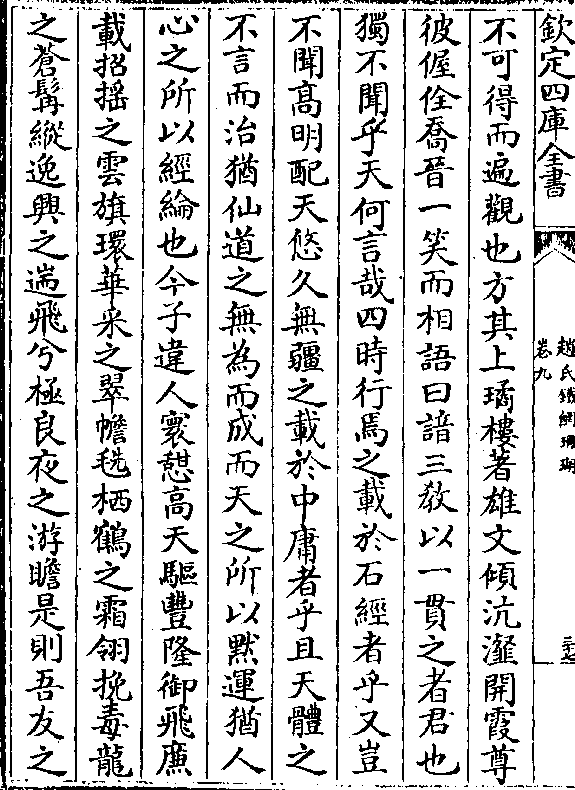 欽定四庫全書
趙氏鐵網珊瑚
卷九
不可得而遍觀也方其上璚樓著雄文傾沆瀣開霞尊
彼偓佺喬晉一笑而相語曰諳三教以一貫之者君也
獨不聞乎天何言哉四時行焉之載於石經者乎又豈
不聞高明配天悠久無疆之載於中庸者乎且天體之
不言而治猶仙道之無為而成而天之所以黙運猶人
心之所以經綸也今子違人寰憇高天驅豐隆御飛廉
載招揺之雲旗環華采之翠幨毨栖鶴之霜翎挽毒龍
之蒼髯縱逸興之遄飛兮極良夜之游瞻是則吾友之